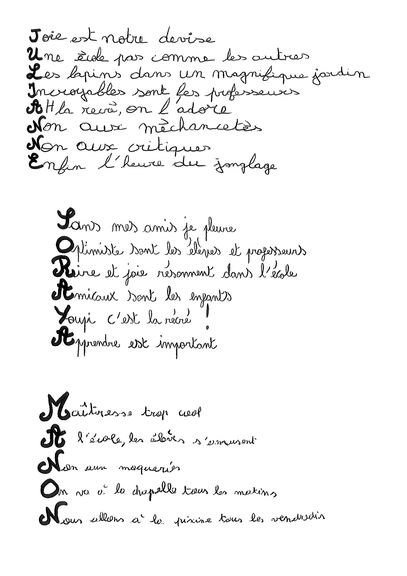 Joie est notre devise
Une école pas comme les autres
Les lapins dans un magnifique jardin
Incroyables sont les professeurs
AH la récré, on l'adore
Non aux méchancetés
Non aux critiques
Enfin l'heure du jonglage
Sans mes amis je pleure
Optimiste sont les élèves et professeurs
Reine et joie résonnent dans l'école
Amicaux sont les enfants
Youpi c'est la récré !
Apprendre est important
Maîtresse trop cool
A l'école, les élèves s'amusent
Non aux moqueries
On va à la chapelle tous les matins
Nous allons à la piscine tous les vendredis